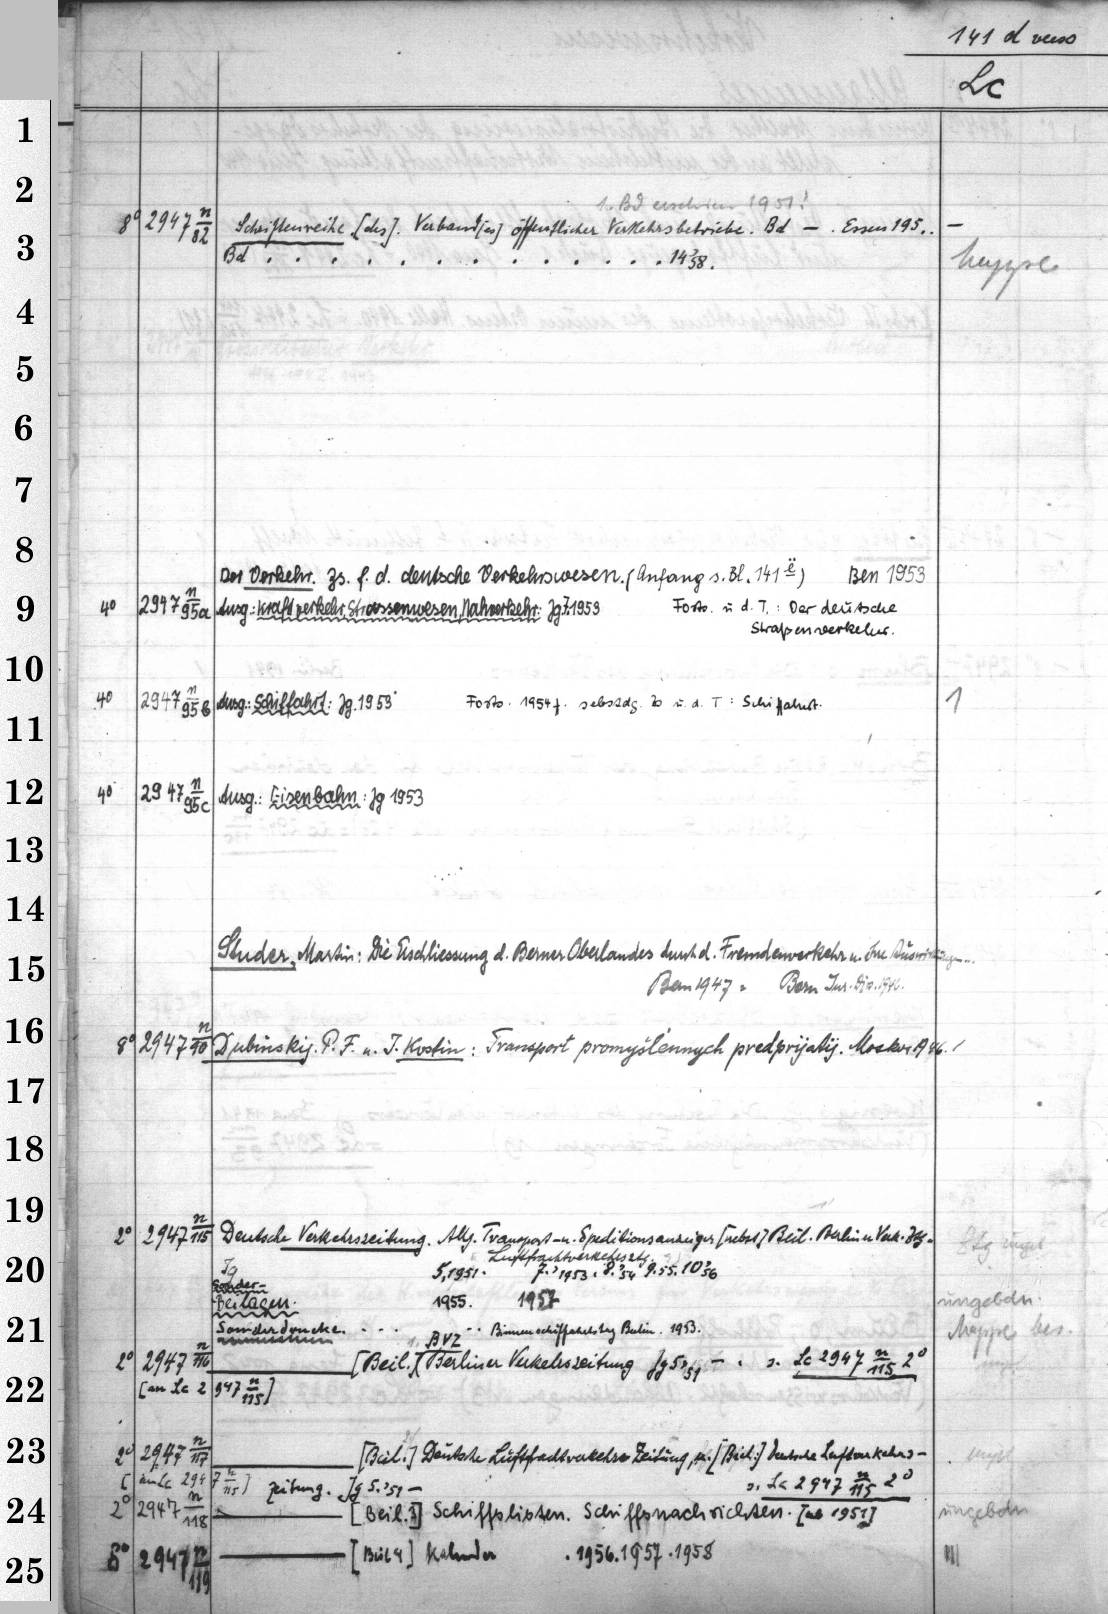 141 d verso
Lc
1
2
1. Bd erschien 1951!
8° 2947 n/82 Schriftenreihe [des]. Verband[es] öffentlicher Verkehrsbetriebe. Bd — . Essen 195.. —
3
Bd . . . . . . . . . . . . 14,58. Mappe
4
5
6
7
8
Der Verkehr. Zs. f. d. deutsche Verkehrswesen. (Anfang s. Bl. 141 e) Bln 1953
9
4° 2947 n/95a Ausg.: Kraftverkehr, Strassenwesen, Nahverkehr: Jg 7.1953 Forts. u. d. T.: Der deutsche
Straßenverkehr.
10
4° 2947 n/95b Ausg.: Schiffahrt: Jg. 1953 Forts. 1954 f. selbstdg. u. d. T: Schiffahrt. 1
11
12
4° 2947 n/95c Ausg.: Eisenbahn: Jg 1953
13
14
Studer, Martin: Die Erschliessung d. Berner Oberlandes durch d. Fremdenverkehr u. ihre
15
Bern 1947 = Bern Jur. Diss.
16
8° 2947 n/90 Dubinskij. P. F. u. I. Kostin: Transport promyšlennych predprijatij. Moskva 1946. /
17
18
19
2° 2947 n/115 Deutsche Verkehrszeitung. Allg. Transport- u. Speditionsanzeiger [nebst] Beil. Berliner Verk. Ztg.
Luftfrachtverkehrsztg.
20
Jg 5,1951. 7.,1953. 8.,54 9.55. 10,56
Sonder-
Beilagen. 1955. 1957 ungebdn.
21
Sonderdrucke. . . . . . Binnenschiffahrtsztg Berlin. 1953. Mappe bes.
1. BVZ
2° 2947 n/116 [Beil.] (Berliner Verkehrszeitung Jg 5,51 — . s. Lc 2947 n/115 2°
22
[an Lc 2947 n/115]
23
2° 2947 n/117 [Beil.] Deutsche Luftfrachtverkehrs Zeitung, [Beil.:] Deutsche Luftverkehrs-
[an Lc 2947 n/115] zeitung. Jg 5.,51 — s. Lc 2947 n/115 2°
24
2° 2947 n/118 [Beil. 3] Schiffslisten. Schiffsnachrichten. [ab 1951] ungebdn
25
8° 2947 n/119 [Beil 4] Kalender . 1956. 1957 . 1958